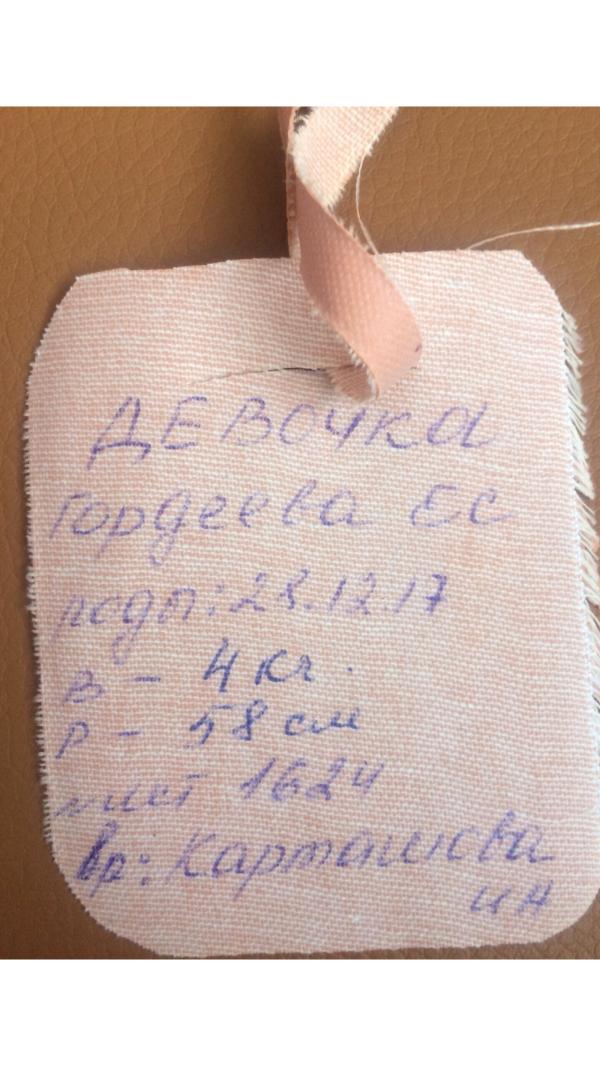 ДЕВОЧКА
Гордеева ЕС
роды: 28.12.17
В - 4 кг.
Р - 58 см
лист 1624
Вр: Карташова
ИН